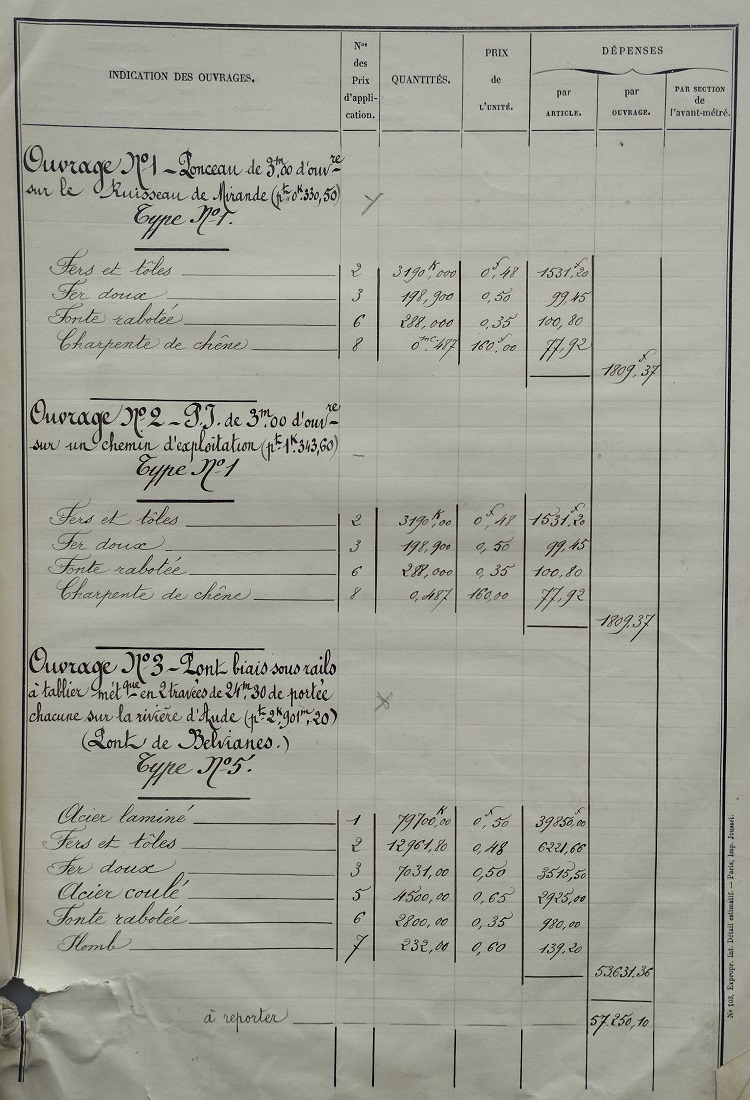 INDICATION DES OUVRAGES. Nos des Prix d'appli-cation. QUANTITÉS. PRIX de L'UNITÉ. DÉPENSES par ARTICLE. par OUVRAGE. PAR SECTION de l'avant-métré.
Ouvrage Nº1 - Ponceau de 3m,00 d'ouvre
sur le Ruisseau de Mirande (pt 0k.330,50)
Type Nº1.
Fers et tôles 2 3190K,000 0f,48 1531f,20
Fer doux 3 198,900 0,50 99,45
Fonte rabotée 6 288,000 0,35 100,80
Charpente de chêne 8 0mc487 160f,00 77,92
1809f,37
Ouvrage Nº2 - P.I. de 3m,00 d'ouvre
sur un chemin d'exploitation (pt 1k.343,60)
Type Nº1
Fers et tôles 2 3190K,00 0f,48 1531f,20
Fer doux 3 198,900 0,50 99,45
Fonte rabotée 6 288,000 0,35 100,80
Charpente de chêne 8 0,487 160,00 77,92
1809.37
Ouvrage Nº3 - Pont biais sous rails
à tablier métque en 2 travées de 24m30 de portée
chacune sur la rivière d'Aude (pt 2k901m,20)
(Pont de Belvianes.)
Type Nº5.
Acier laminé 1 79700K,00 0f,50 39850f,00
Fers et tôles 2 12961,80 0,48 6221,66
Fer doux 3 7031,00 0,50 3515,50
Acier coulé 5 4500,00 0,65 2925,00
Fonte rabotée 6 2800,00 0,35 980,00
Plomb 7 232,00 0,60 139,20
53.631.36
à reporter 57.250,10
Nº 103. Expropr. Int. Détail estimatif. — Paris, Imp. Jousset.